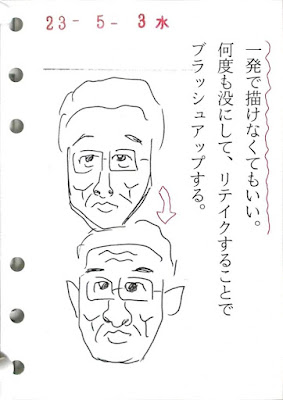 23-5-3水
一発で描けなくてもいい。
何度も没にして、リテイクすることで
ブラッシュアップする。